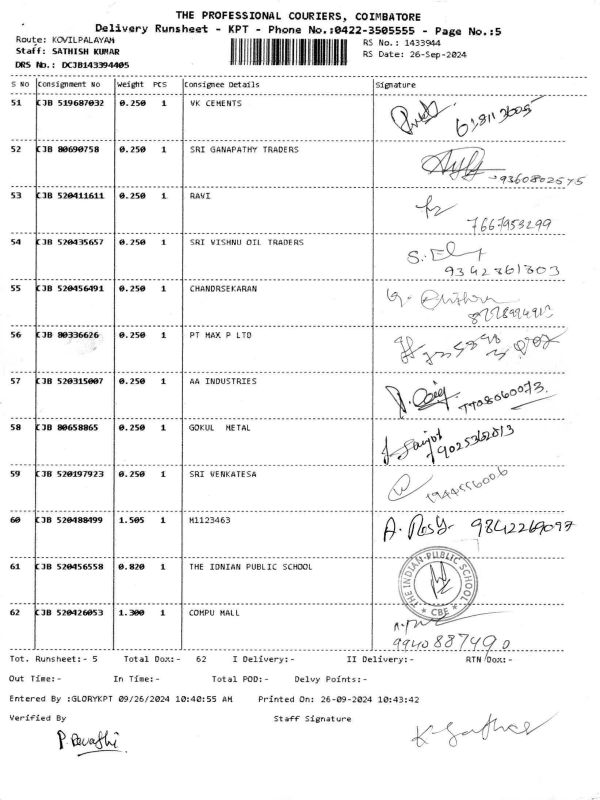 THE PROFESSIONAL COURIERS, COIMBATORE
Delivery Runsheet - KPT - Phone No.:0422-3505555 - Page No.:5
Route: KOVILPALAYAM
Staff: SATHISH KUMAR
DRS No.: DCJB143394405
RS No.: 1433944
RS Date: 26-Sep-2024
S No Consignment No Weight PCS Consignee Details Signature
51 CJB 519687032 0.250 1 VK CEMENTS
52 CJB 80690758 0.250 1 SRI GANAPATHY TRADERS
9360802575
53 CJB 520411611 0.250 1 RAVI
7667953299
54 CJB 520435657 0.250 1 SRI VISHNU OIL TRADERS
9342361303
55 CJB 520456491 0.250 1 CHANDRSEKARAN
56 CJB 80336626 0.250 1 PT MAX P LTD
57 CJB 520315007 0.250 1 AA INDUSTRIES
7708060073
58 CJB 80658865 0.250 1 GOKUL METAL
59 CJB 520197923 0.250 1 SRI VENKATESA
60 CJB 520488499 1.505 1 M1123463
61 CJB 520456558 0.820 1 THE IDNIAN PUBLIC SCHOOL
THE INDIAN PUBLIC SCHOOL
* CBE *
62 CJB 520426053 1.300 1 COMPU MALL
9940887490
Tot. Runsheet:- 5 Total Dox:- 62 I Delivery:- II Delivery:- RTN Dox:-
Out Time:- In Time:- Total POD:- Delvy Points:-
Entered By :GLORYKPT 09/26/2024 10:40:55 AM Printed On: 26-09-2024 10:43:42
Verified By Staff Signature
P. Revathi